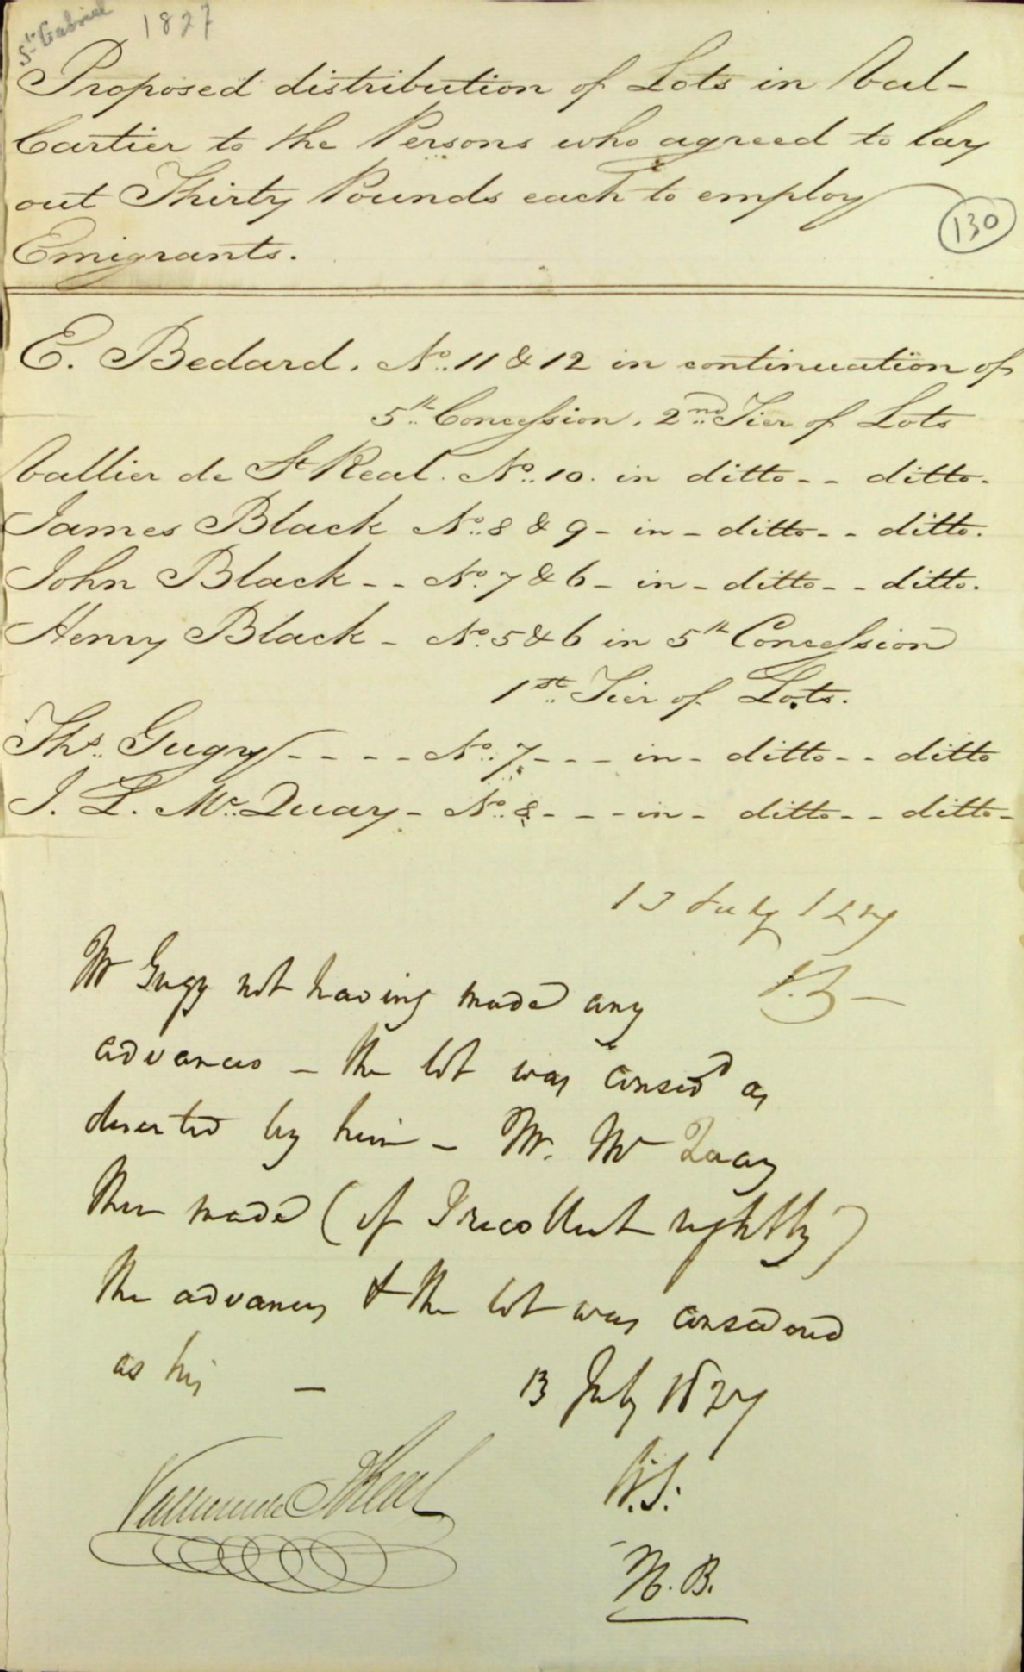 St. Gabriel 1827
Proposed distribution of Lots in Val-
Cartier to the Persons who agreed to lay
out Thirty Pounds each to employ
130
Emigrants.
E. Bedard. No. 11 & 12 in continuation of
5th Concession. 2nd Tier of Lots
Vallier de St Real. No. 10. in ditto - - ditto.
James Black No. 8 & 9 - in - ditto - - ditto.
John Black - - No. 7 & 6 - in - ditto - - ditto.
Henry Black - No. 5 & 6 in 5th Concession
1st Tier of Lots.
Ths. Gugy - - - - No. 7 - - - in - ditto - - ditto
J. L. Mc. Quay - No. 8 - - - in - ditto - - ditto -
13 July 1827
Mr Gugy not having made any
advances - the lot was consid'd as
deserted by him - Mr. Mc Quay
then made (if I recollect rightly)
the advances & the lot was considered
as his -
13 July 1827
H. B.